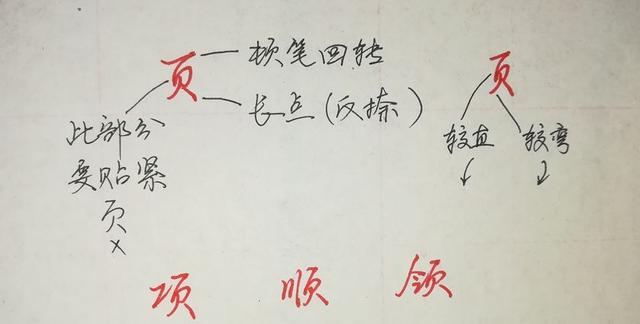 页
顿笔回转
长点(反捺)
此部分
要贴紧
页
×
页
较直
较弯
项 顺 领